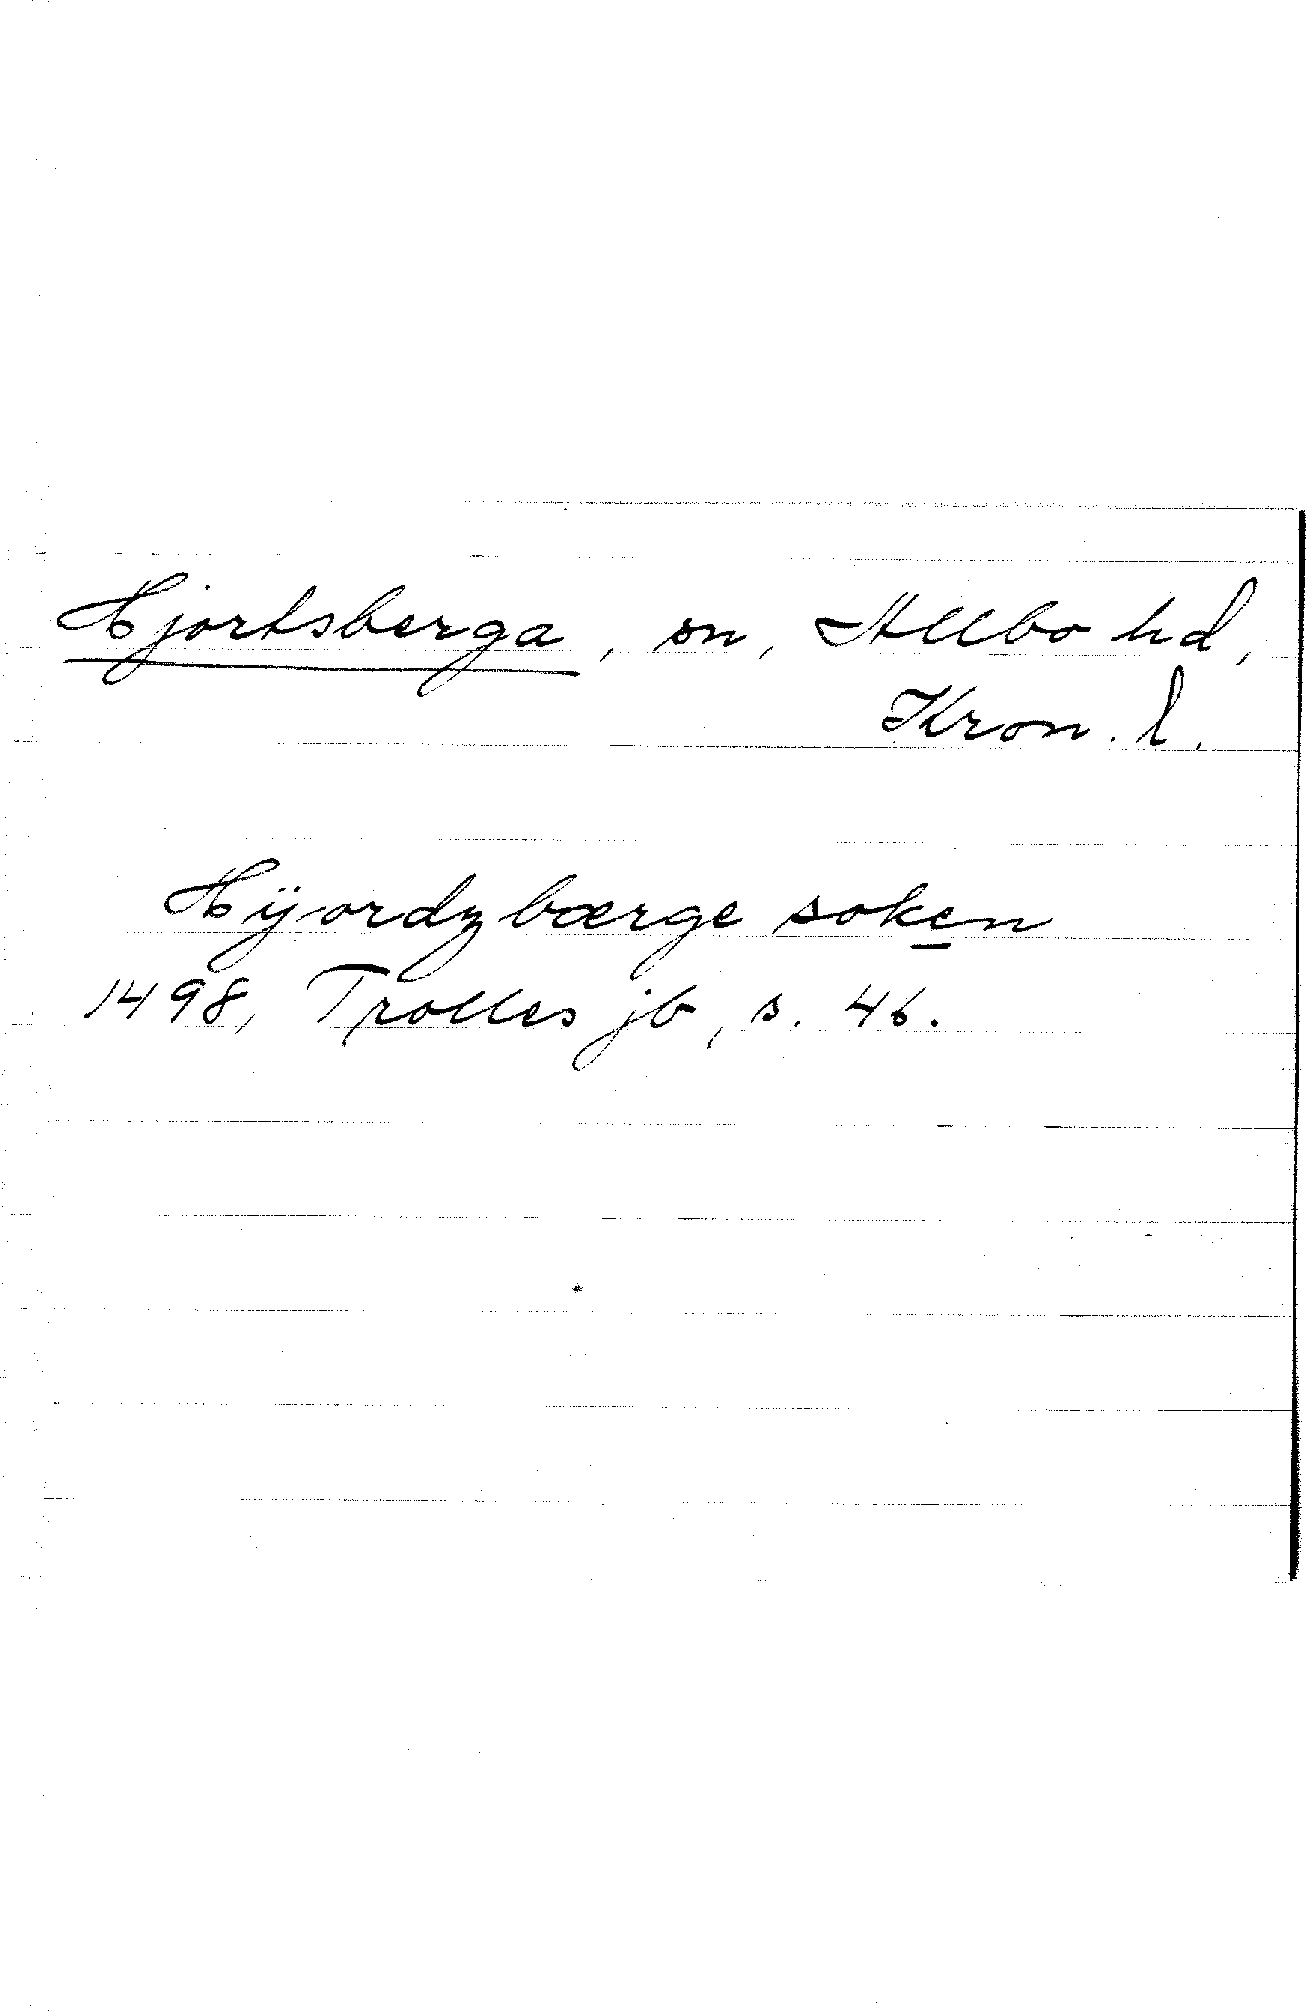 Hjortsberga, sn, Allbo hd,
Kron. l.
Hÿordzbærge soken
1498, Trolles jb, s. 46.